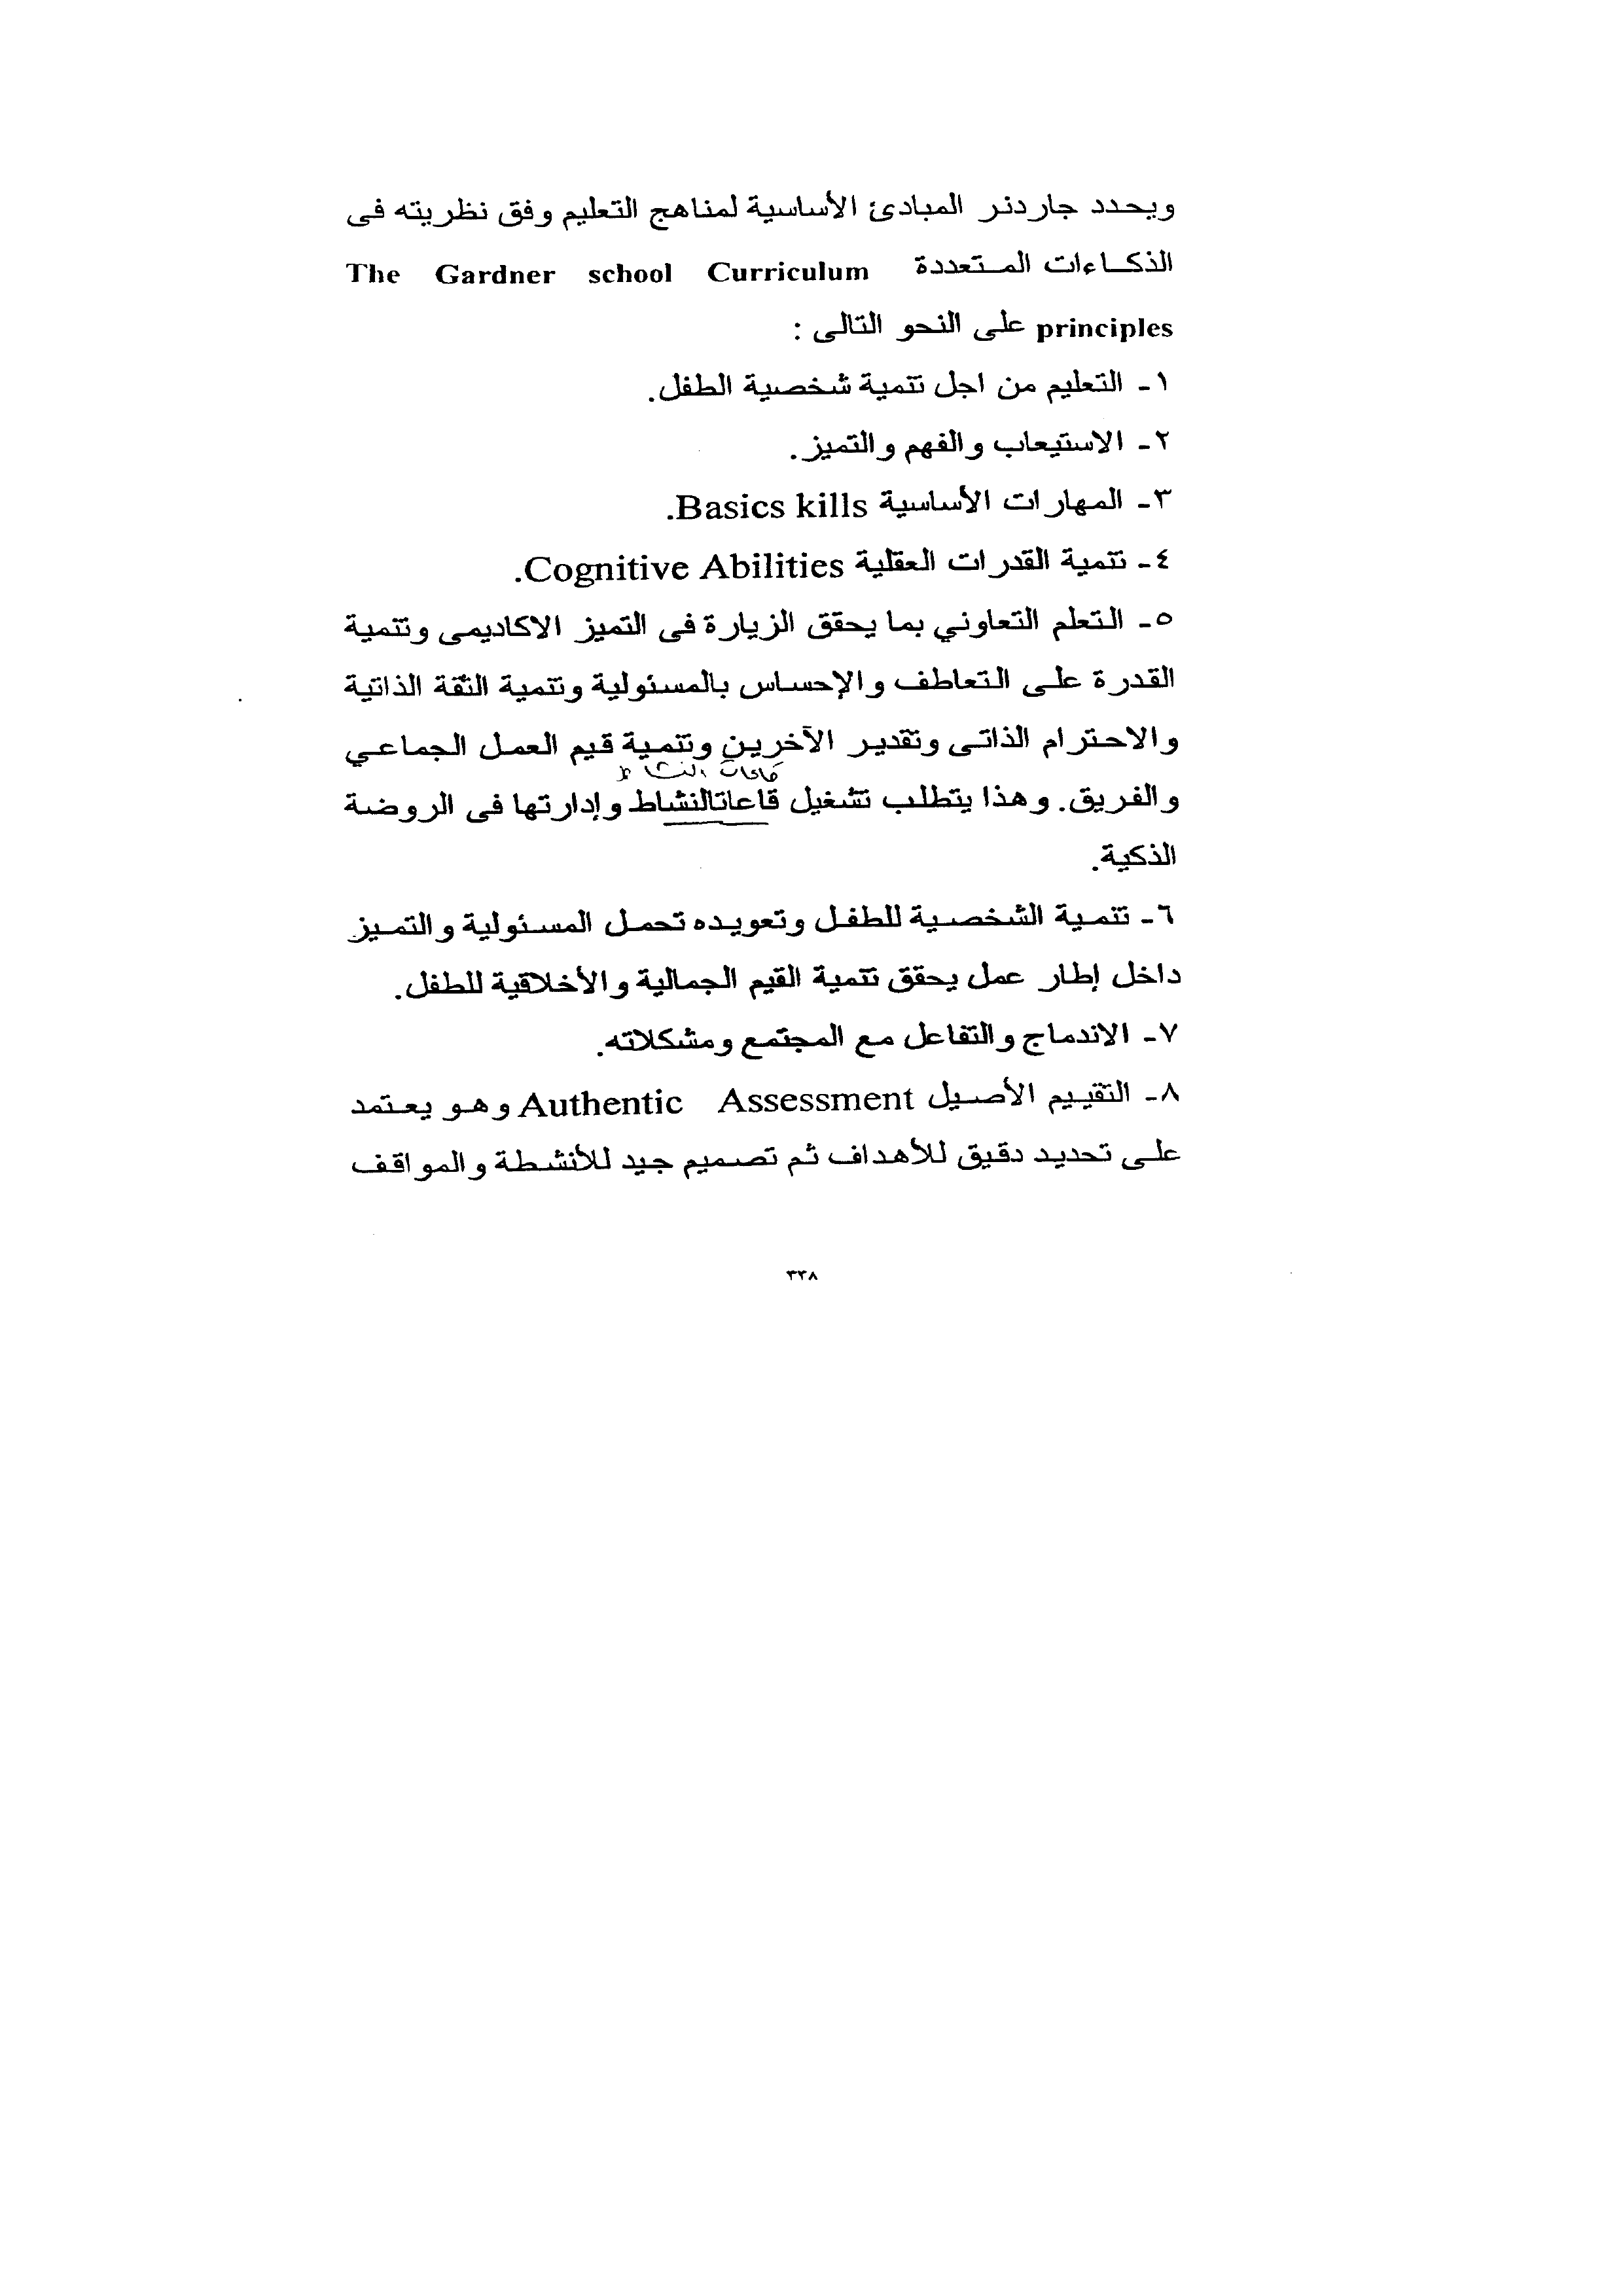 ويحدد جاردنر المبادئ الأساسية لمناهج التعليم وفق نظريته فى
الذكاءات المتعددة The Gardner school Curriculum
principles على النحو التالى :
١- التعليم من اجل تنمية شخصية الطفل.
٢- الاستيعاب والفهم والتميز.
٣- المهارات الأساسية Basics kills.
٤- تنمية القدرات العقلية Cognitive Abilities.
٥- التعلم التعاوني بما يحقق الزيارة فى التميز الاكاديمى وتنمية
القدرة على التعاطف والإحساس بالمسئولية وتنمية الثقة الذاتية
والاحترام الذاتى وتقدير الآخرين وتنمية قيم العمل الجماعي
قاعات النشاط
والفريق. وهذا يتطلب تشغيل قاعاتالنشاط وإدارتها فى الروضة
الذكية.
٦- تنمية الشخصية للطفل وتعويده تحمل المسئولية والتميز
داخل إطار عمل يحقق تنمية القيم الجمالية والأخلاقية للطفل.
٧- الاندماج والتفاعل مع المجتمع ومشكلاته.
٨- التقييم الأصيل Authentic Assessment وهو يعتمد
على تحديد دقيق للأهداف ثم تصميم جيد للأنشطة والمواقف
٣٣٨